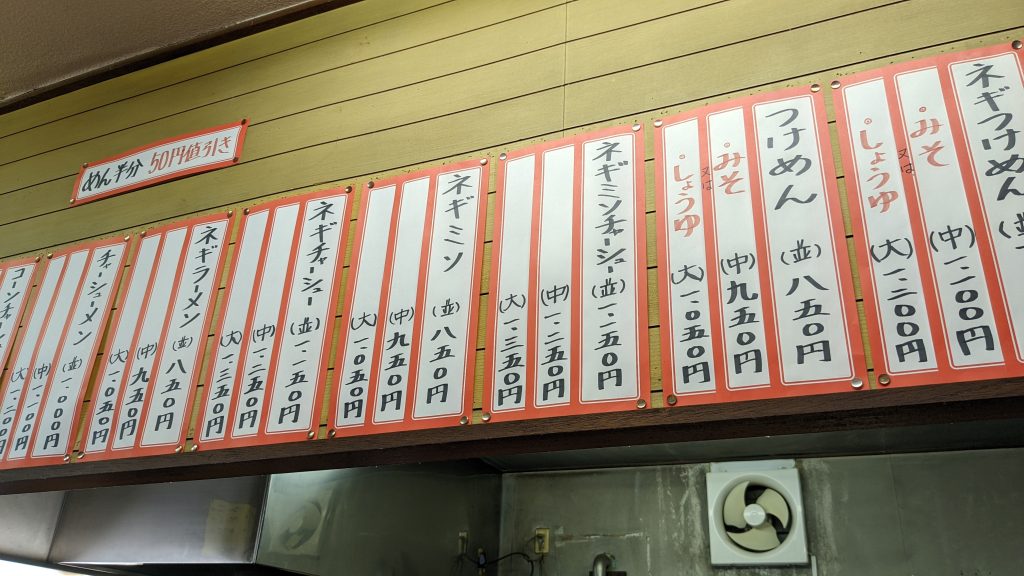 めん半分 50円値引き
ネギつけめん
・みそ又は (中)一.一〇〇円
・しょうゆ (大)一.二〇〇円
つけめん (並)八五〇円
・みそ又は (中)九五〇円
・しょうゆ (大)一.〇五〇円
ネギミソチャーシュー (並)一.一五〇円
(中)一.二五〇円
(大)一.三五〇円
ネギミソ (並)八五〇円
(中)九五〇円
(大)一.〇五〇円
ネギチャーシュー (並)一.一五〇円
(中)一.二五〇円
(大)一.三五〇円
ネギラーメン (並)八五〇円
(中)九五〇円
(大)一.〇五〇円
チャーシューメン (並)一.〇〇〇円
(中)一.一〇〇円
(大)一.二〇〇円
コーンチャー